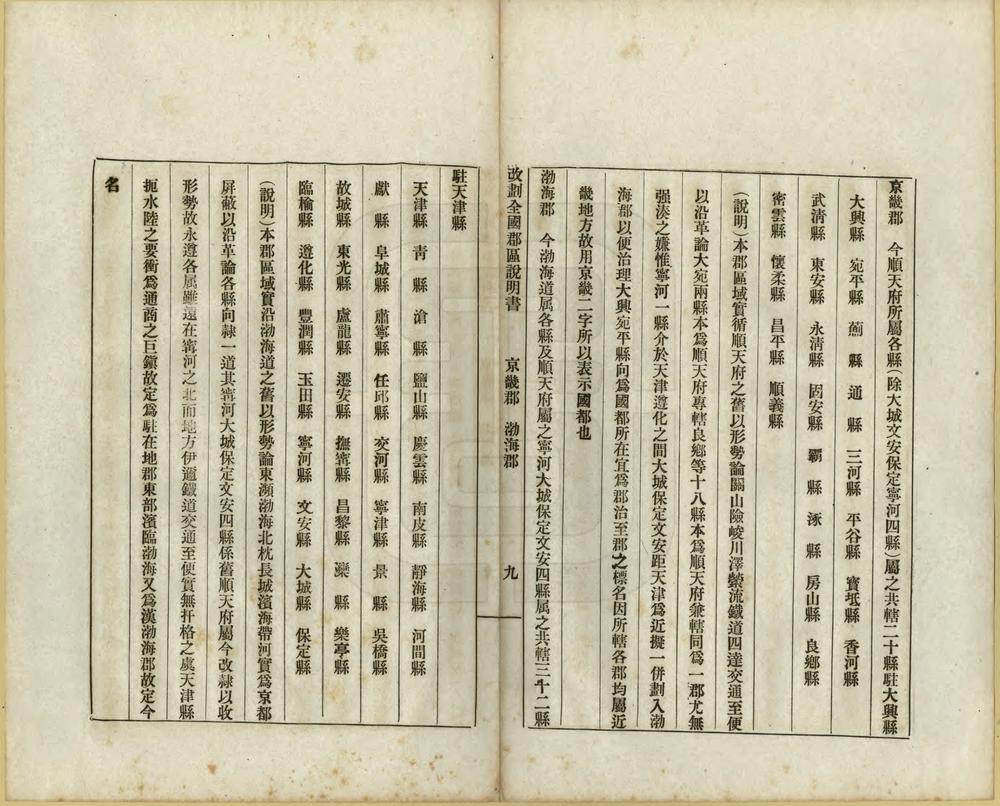 京畿郡　今順天府所屬各縣（除大城文安保定寧河四縣）屬之共轄二十縣駐大興縣
大興縣　宛平縣　薊　縣　通　縣　三河縣　平谷縣　寶坻縣　香河縣
武淸縣　東安縣　永淸縣　固安縣　霸　縣　涿　縣　房山縣　良鄕縣
密雲縣　懷柔縣　昌平縣　順義縣
（說明）本郡區域實循順天府之舊以形勢論關山險峻川澤縈流鐵道四達交通至便
以沿革論大宛兩縣本爲順天府專轄良鄕等十八縣本爲順天府兼轄同爲一郡尤無
强湊之嫌惟寧河一縣介於天津遵化之間大城保定文安距天津爲近擬一併劃入渤
海郡以便治理大興宛平縣向爲國都所在宜爲郡治至郡之標名因所轄各郡均屬近
畿地方故用京畿二字所以表示國都也
渤海郡　今渤海道属各縣及順天府屬之寧河大城保定文安四縣属之共轄三十二縣
改劃全國郡區說明書　京畿郡　渤海郡　九
駐天津縣
天津縣　靑　縣　滄　縣　鹽山縣　慶雲縣　南皮縣　靜海縣　河間縣
獻　縣　阜城縣　肅寧縣　任邱縣　交河縣　寧津縣　景　縣　吳橋縣
故城縣　東光縣　盧龍縣　遷安縣　撫甯縣　昌黎縣　灤　縣　樂亭縣
臨榆縣　遵化縣　豐潤縣　玉田縣　寧河縣　文安縣　大城縣　保定縣
（說明）本郡區域實沿渤海道之舊以形勢論東瀕渤海北枕長城濱海帶河實爲京都
屛蔽以沿革論各縣向隸一道其甯河大城保定文安四縣係舊順天府屬今改隸以收
形勢故永遵各属雖遠在甯河之北而地方伊邇鐵道交通至便實無扞格之虞天津縣
扼水陸之要衝爲通商之巨鎭故定爲駐在地郡東部濱臨渤海又爲漢渤海郡故定今
名